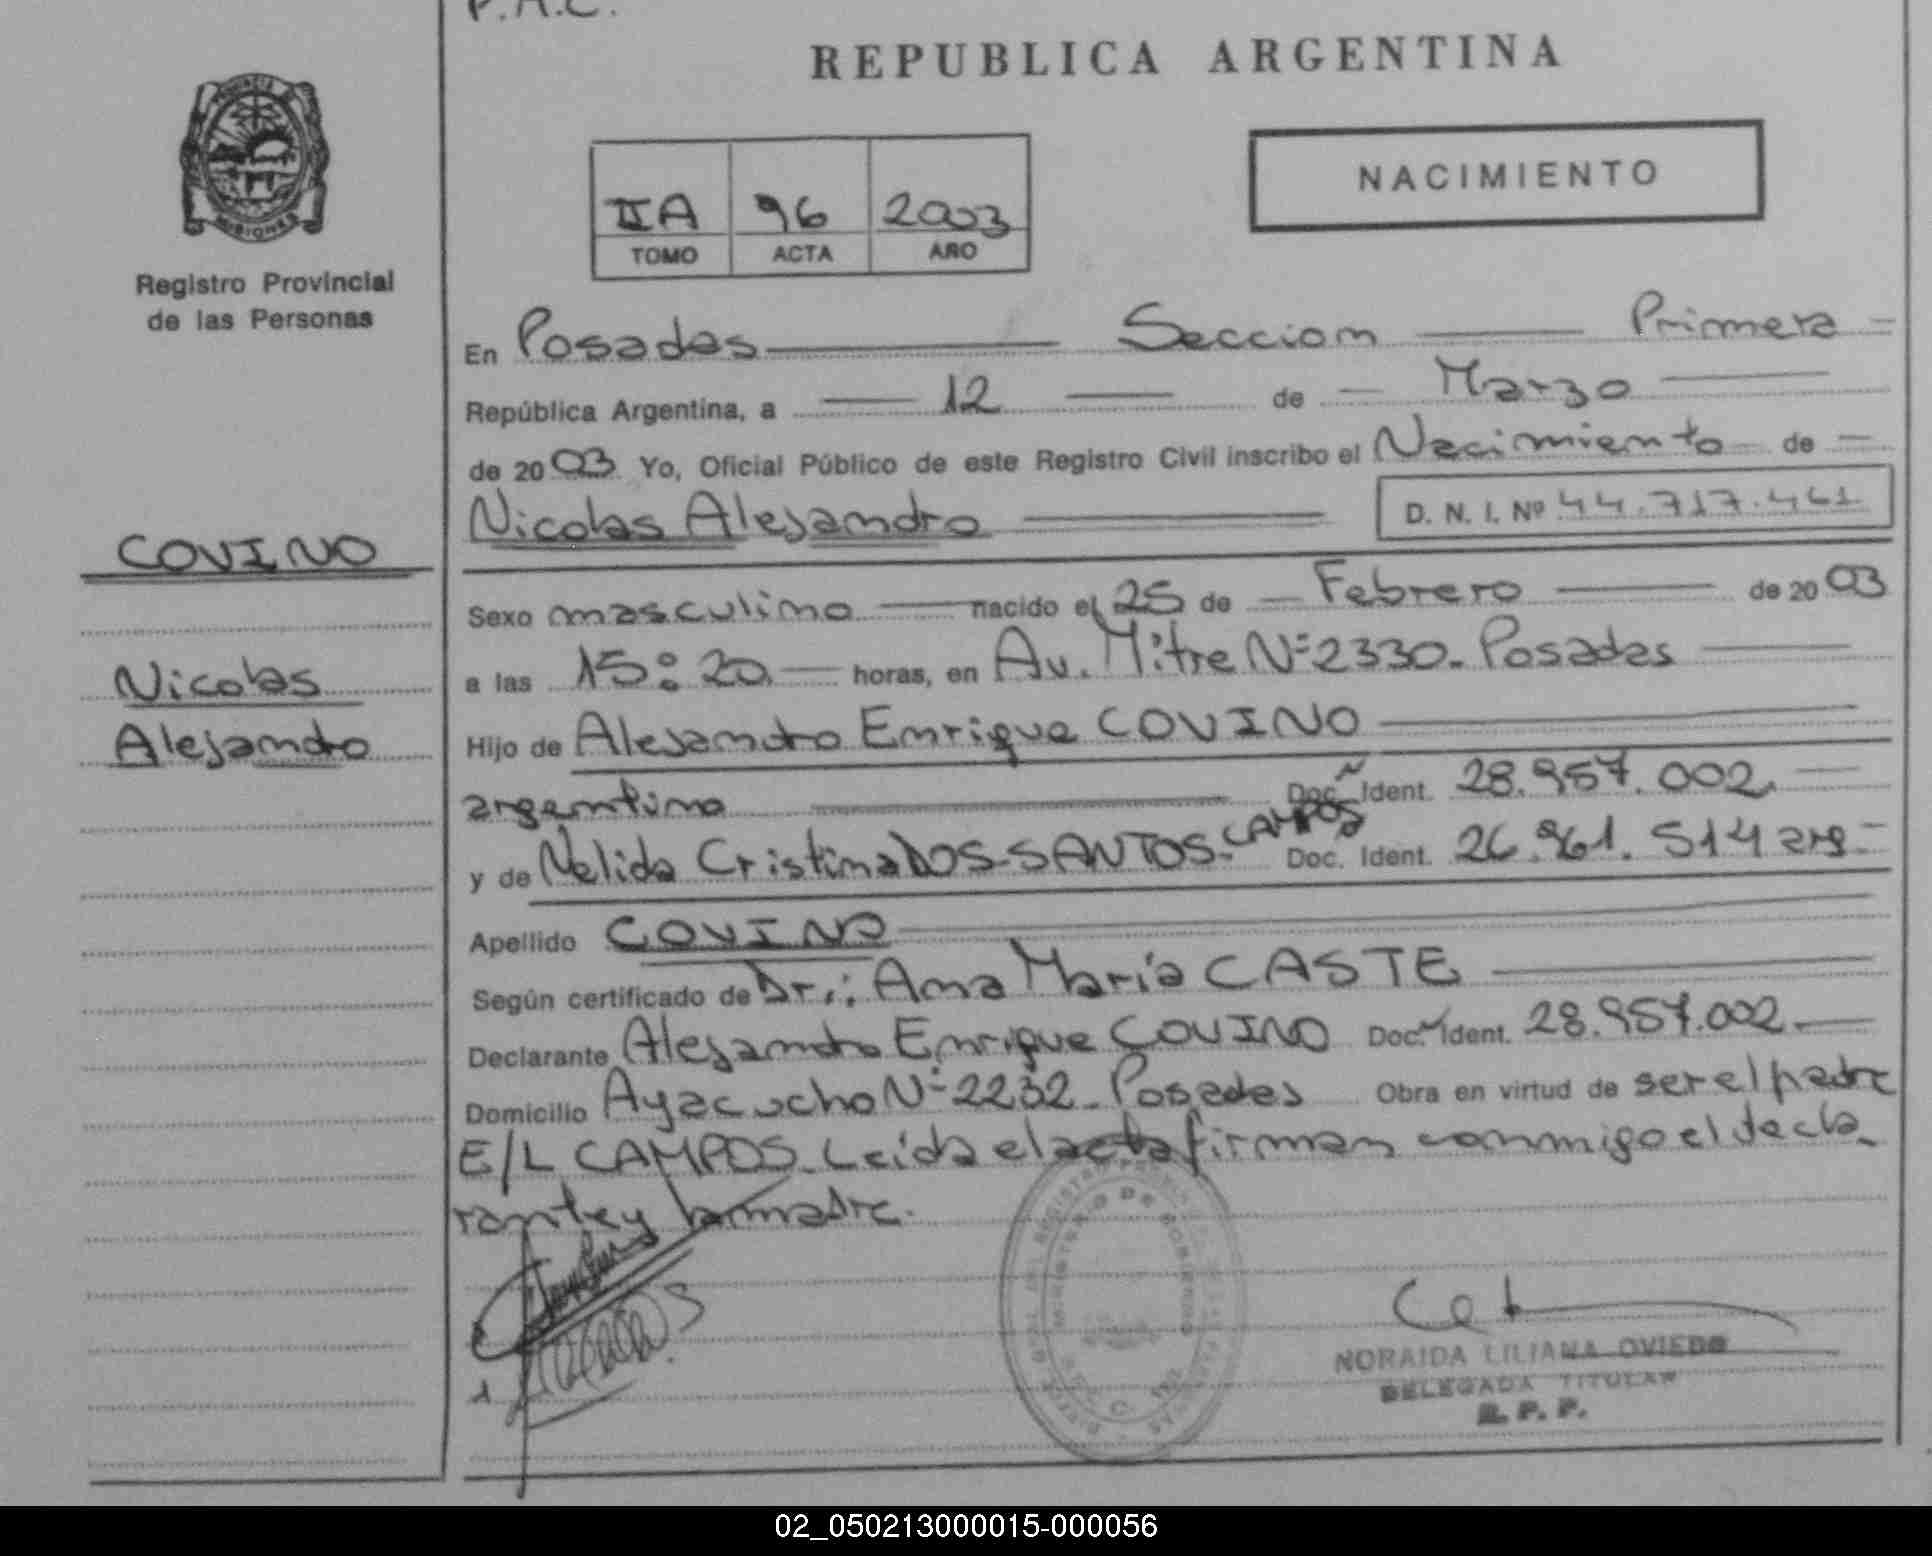 P.A.C.
REPUBLICA ARGENTINA
PROVINCIA DE
MISIONES
Registro Provincial
de las Personas
NACIMIENTO
IIA 96 2003
TOMO ACTA AÑO
En Posadas Seccion Primera
República Argentina, a 12 de Marzo
de 2003 Yo, Oficial Público de este Registro Civil inscribo el Nacimiento de
Nicolas Alejandro D. N. I. Nº 44.717.461
COVINO
Nicolas
Alejandro
Sexo masculino nacido el 25 de Febrero de 2003
a las 15:20 horas, en Av. Mitre Nº 2330. Posadas
Hijo de Alejandro Enrique COVINO
argentino Doc. Ident. 28.957.002
y de Nelida Cristina DOS-SANTOS-CAMPOS Doc. Ident. 26.961.514 arg-
Apellido COVINO
Según certificado de Dr.: Ana María CASTE
Declarante Alejandro Enrique COVINO Doc. Ident. 28.957.002
Domicilio Ayacucho Nº 2232. Posadas Obra en virtud de ser el padre
E/L CAMPOS. Leída el acta firman conmigo el decla
rante y la madre.
NORAIDA LILIANA OVIEDO
DELEGADA TITULAR
R. P. P.
02_050213000015-000056